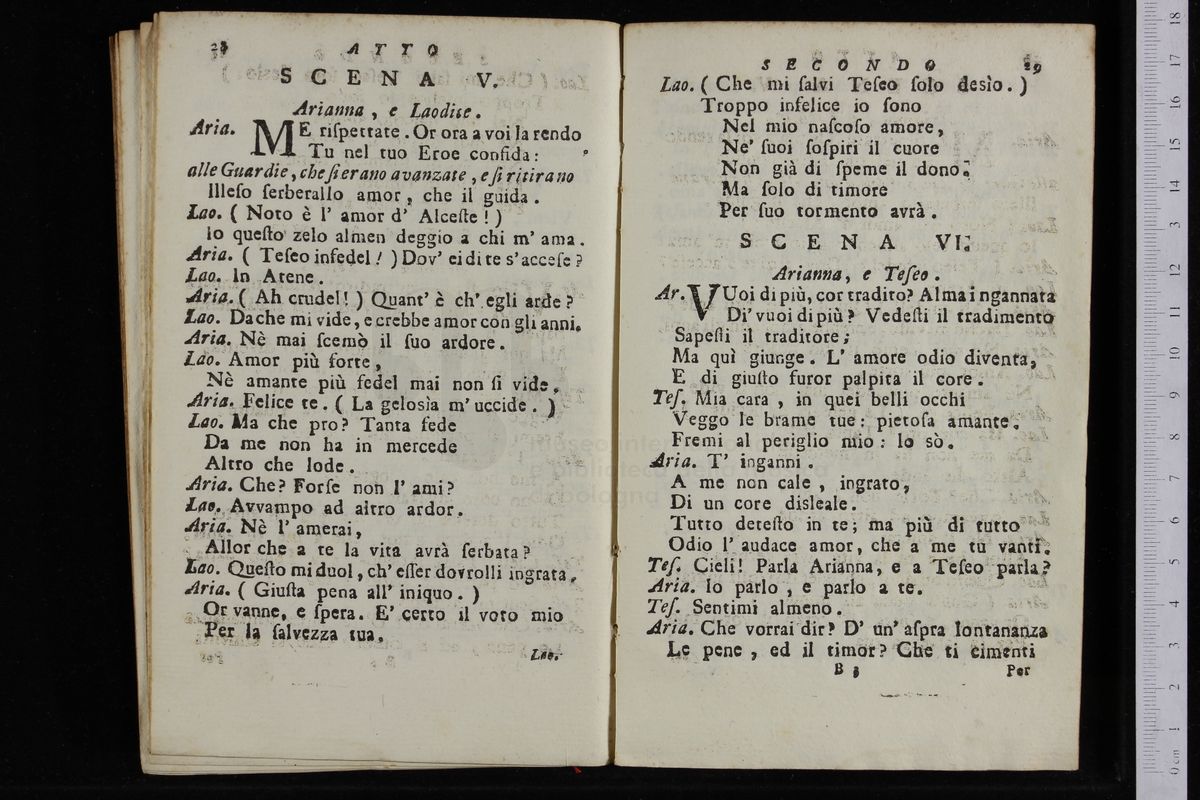 28 ATTO
SCENA V.
Arianna, e Laodice.
Aria. ME riſpettate. Or ora a voi la rendo
Tu nel tuo Eroe confida:
alle Guardie, che ſi erano avanzate, e ſi ritirano
Illeſo ſerberallo amor, che il guida.
Lao. ( Noto è l' amor d' Alceſte! )
Io queſto zelo almen deggio a chi m' ama.
Aria. ( Teſeo infedel! ) Dov' ei di te s' acceſe?
Lao. In Atene.
Aria. ( Ah crudel! ) Quant' è ch' egli arde?
Lao. Dache mi vide, e crebbe amor con gli anni.
Aria. Nè mai ſcemò il ſuo ardore.
Lao. Amor più forte,
Nè amante più fedel mai non ſi vide.
Aria. Felice te. ( La gelosìa m' uccide. )
Lao. Ma che pro? Tanta fede
Da me non ha in mercede
Altro che lode.
Aria. Che? Forſe non l' ami?
Lao. Avvampo ad altro ardor.
Aria. Nè l' amerai,
Allor che a te la vita avrà ſerbata?
Lao. Queſto mi duol, ch' eſſer dovrolli ingrata.
Aria. ( Giuſta pena all' iniquo. )
Or vanne, e ſpera. E' certo il voto mio
Per la ſalvezza tua.
Lao.
SECONDO 29
Lao. ( Che mi ſalvi Teſeo ſolo desìo. )
Troppo infelice io ſono
Nel mio naſcoſo amore,
Ne' ſuoi ſoſpiri il cuore
Non già di ſpeme il dono;
Ma ſolo di timore
Per ſuo tormento avrà.
SCENA VI.
Arianna, e Teſeo.
Ar. VUoi di più, cor tradito? Alma ingannata
Di' vuoi di più? Vedeſti il tradimento
Sapeſti il traditore;
Ma quì giunge. L' amore odio diventa,
E di giuſto furor palpita il core.
Teſ. Mia cara, in quei belli occhi
Veggo le brame tue: pietoſa amante.
Fremi al periglio mio: lo sò.
Aria. T' inganni.
A me non cale, ingrato,
Di un core disleale.
Tutto deteſto in te; ma più di tutto
Odio l' audace amor, che a me tu vanti.
Teſ. Cieli! Parla Arianna, e a Teſeo parla?
Aria. Io parlo, e parlo a te.
Teſ. Sentimi almeno.
Aria. Che vorrai dir? D' un' aſpra lontananza
Le pene, ed il timor? Che ti cimenti
B 3 Per